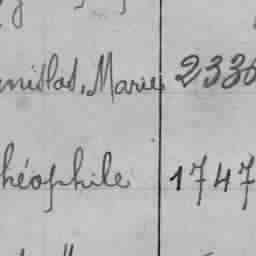 nislas, Marie 2336
héophile 1747